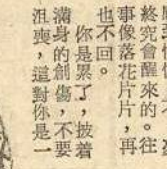 終究會醒來的。往
事像落花片片，再
也不回。
你是累了，披着
滿身的創傷，不要
沮喪，這對你是一